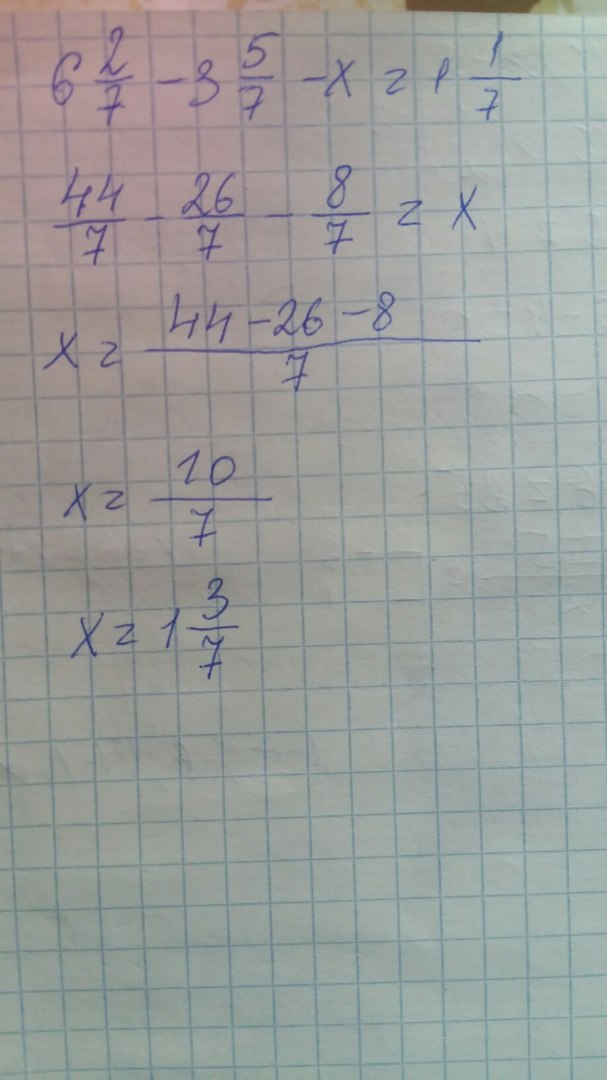 6 2/7 - 3 5/7 - x = 1 1/7
44/7 - 26/7 - 8/7 = x
x = (44 - 26 - 8)/7
x = 10/7
x = 1 3/7